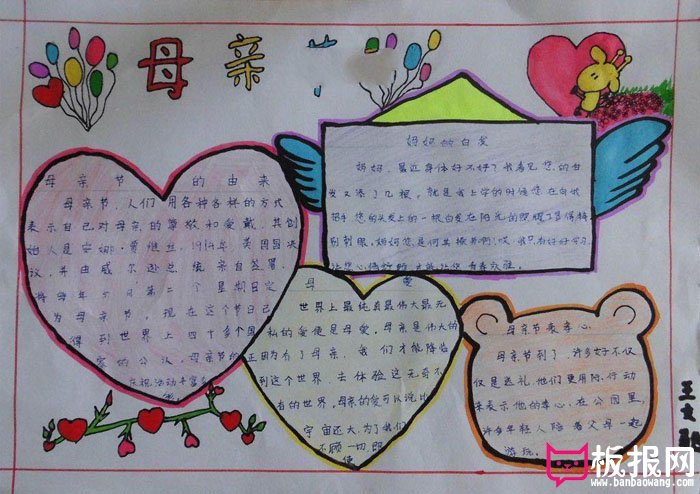 母亲节
母亲节的由来
母亲节,人们用各种各样的方式
表示自己对母亲的尊敬和爱戴,其创
始人是安娜·贾维丝,1914年,美国国会
议,并由威尔逊总统亲自签署,
将每年5月第二个星期日定
为母亲节,现在这个节日已
得到世界上四十多个国
家的公认,母亲节的
庆祝活动丰富多
妈妈的白发
妈妈,最近身体好不好?我看见您的白
发又添了几根,就是我上学的时候您在向我
招手,您的头发上的一根白发在阳光的照耀下显得特
别刺眼,妈妈您是何其操劳啊!哎,我只有好好学习
让您心情舒畅,才能让您青春永驻。
母爱
世界上最纯真最伟大最无
私的爱便是母爱,母亲是伟大的
正因为有了母亲,我们才能降临
到这个世界,去体验这无奇不
有的世界,母亲的爱可以说比
宇宙还大,为了我们
不顾一切,即
使
母亲节表孝心
母亲节到了,许多好不仅
仅是送礼,他们更用行动
来表示他们的孝心,在公园里
许多年轻人陪着父母一起
游玩。
王文
板报网
www.banbaowang.com